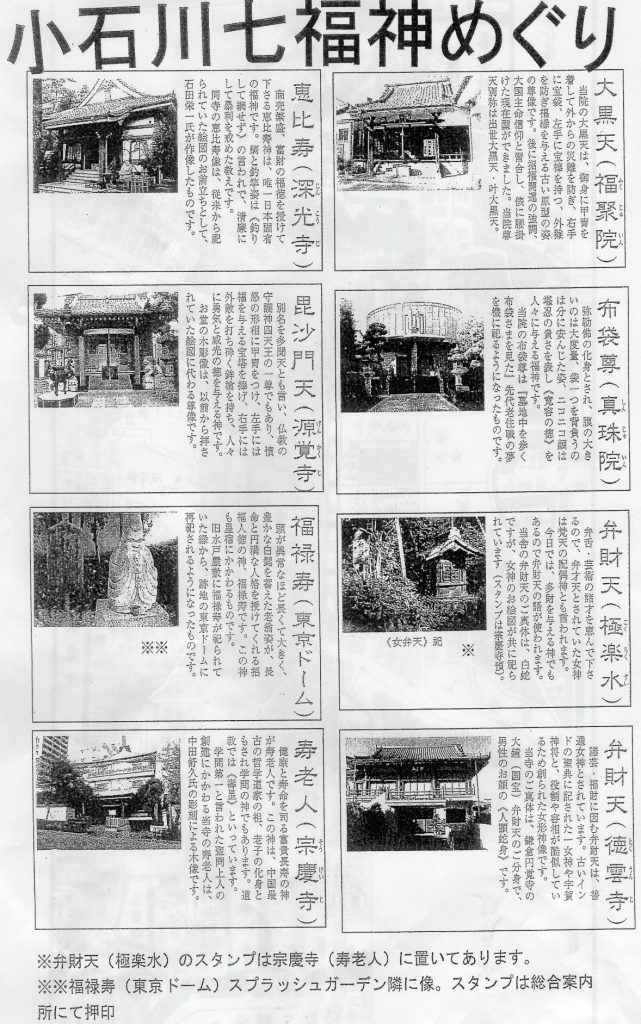 小石川七福神めぐり
大黒天(福聚院)
当院の大黒天は、御身に甲冑を
着して外からの災難を防ぎ、右手
に宝袋、左手に宝棒を持つ、外難
を防ぎ福縁を与える古い原型の姿
の尊像です。後に福徳開運の強調、
大国主命信仰と習合し、俵に腰掛
けた現在型ができました。当院尊
天別称は出世大黒天・叶大黒天。
恵比寿(深光寺)
商売繁盛、富財の福徳を授けて
下さる恵比寿神は、唯一日本固有
の福神です。鯛と釣竿姿は《釣り
して網せず》の言われで、清廉に
して暴利を戒めた教えです。
同寺の恵比寿像は、従来から祀
られていた絵図のお前立ちとして、
石田栄一氏が作像したものです。
布袋尊(真珠院)
弥勒佛の化身とされ、腹の大き
いのは大度量、袋一つを背負うの
は分に安んじた姿、ニコニコ顔は
堪忍の貴さを表し《寛容の徳》を
人々に与える福神です。
当院の布袋尊は『墓地中を歩く
布袋さまを見た』先代老住職の夢
を機に祀るようになったものです。
毘沙門天(源覚寺)
別名を多聞天とも言い、仏教の
守護神四天王の一尊でもあり、憤
怒の形相に甲冑をつけ、左手には
福を与える宝塔を捧げ、右手には
外敵を打ち砕く鉾槍を持ち、人々
に勇気と威光の徳を与える神です。
お堂の木彫像は、以前から拝さ
れていた絵図に代わる尊像です。
弁財天(極楽水)
弁舌・芸術の諸才を恵んで下さ
るので、弁才天とされていた女神
は梵天の配偶神とも言われます。
今日では、多財を与える神でも
あるので弁財天の語が使われます。
当舎の弁財天のご真体は、白蛇
ですが、女神のお絵図が共に祀ら
れています(スタンプは宗慶寺預)。
《女弁天》祀
※
福禄寿(東京ドーム)
頭が異常なほど長くて大きく、
豊かな白髭を蓄えた老翁姿が、長
命と円満な人格を授けてくれる招
福人徳の神、福禄寿です。この神
も星宿にかかわるものです。
旧水戸屋敷に福禄寿が祀られて
いた縁から、跡地の東京ドームに
再祀されるようになったものです。
※※
弁財天(徳雲寺)
諸芸・福財に因む弁財天は、普
通女神とされています。古いイン
ドの聖典に記された一女神や宇賀
神将と、役割や容相が酷似してい
るため創られた女形神像です。
当寺のご真体は、鎌倉円覚寺の
大鐘(国宝)弁財天のご分身で、
男性のお顔の《人頭蛇身》です。
寿老人(宗慶寺)
健康と寿命を司る富貴長寿の神
が寿老人です。この神は、中国最
古の哲学道家の祖、老子の化身と
もされ学問の神でもあります。道
教では《寿星》といっています。
学問第一と言われた聖冏上人の
創建にかかわる当寺の寿老人は、
中田舒久氏の彫刻による木像です。
※弁財天(極楽水)のスタンプは宗慶寺(寿老人)に置いてあります。
※※福禄寿(東京ドーム)スプラッシュガーデン隣に像。スタンプは総合案内
所にて押印